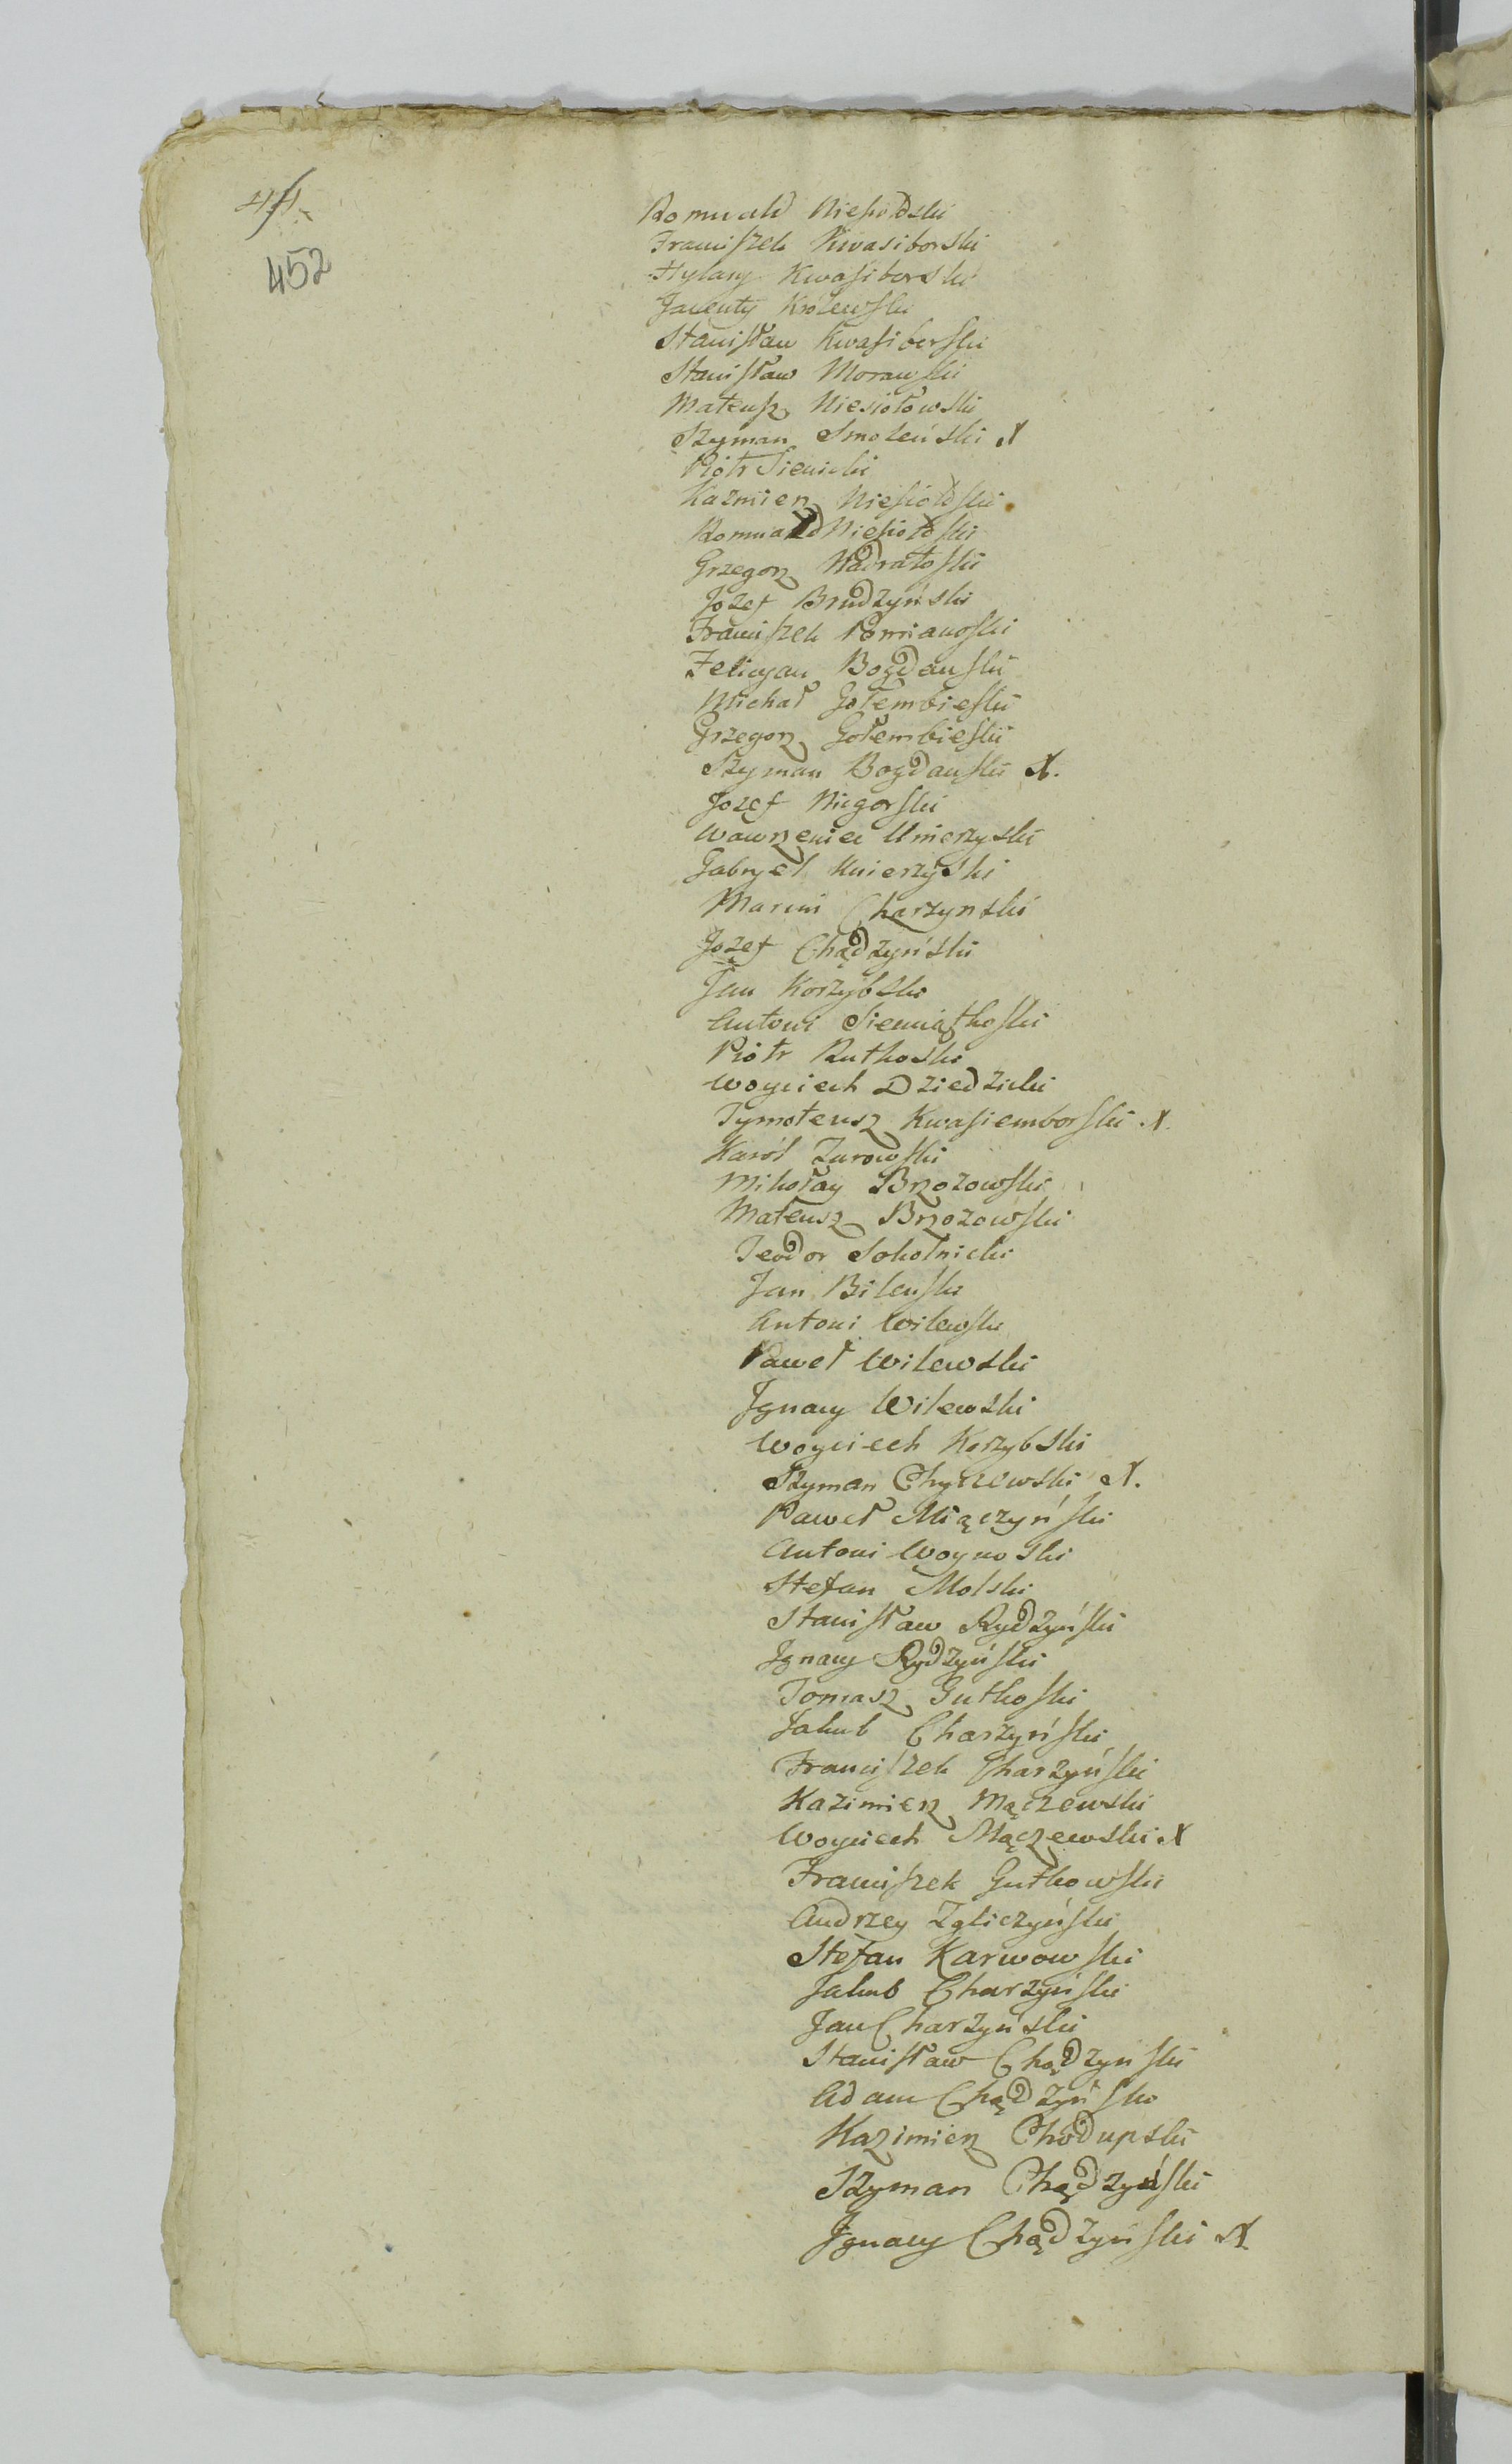 44
452
Romuald Niesiołdski
Franciszek Kwasiborski
Hylary Kwasiborski
Jacenty Królewski
Stanisław Kwasiborski
Stanisław Morawski
Mateusz Niesiołowski
Szyman Smoleński X
Piotr Sienicki
Kazmierz Niesiołdski
Romuald Niesiołdski
Grzegorz Nadratoski
Jozef Brudzyński
Franciszek Pomianoski
Felicyan Bogdanski
Michał Gołembieski
Grzegorz Gołembieski
Szyman Bogdanski X.
Jozef Niegorski
Wawrzeniec Umierzyski
Gabryel Unierzyski
Marcin Charzynski
Jozef Chądzyński
Jan Korzybski
Antoni Siemiątkoski
Piotr Rutkoski
Woyciech Dziedzicki
Tymoteusz Kwasiemborski X.
Karól Zurowski
Mikołay Brzozowski
Mateusz Brzozowski
Teodor Sokolnicki
Jan Bilenski
Antoni Wilewski
Paweł Wilewski
Jgnacy Wilewski
Woyciech Korzybski
Szyman Chyczewski X.
Paweł Miączyński
Antoni Woynoski
Stefan Molski
Stanisław Rydzyński
Jgnacy Rydzyński
Tomasz Gutkoski
Jakub Charzyński
Franciszek Charzyński
Kazimierz Mączewski
Woyciech Mączewski X
Franciszek Gutkowski
Andrzey Zgliczyński
Stefan Karwowski
Jakub Charzyński
Jan Charzyński
Stanisław Chądzynski
Adam Chądzyńsko
Kazimierz Chodupski
Szyman Chądzyński
Jgnacy Chądzyński X